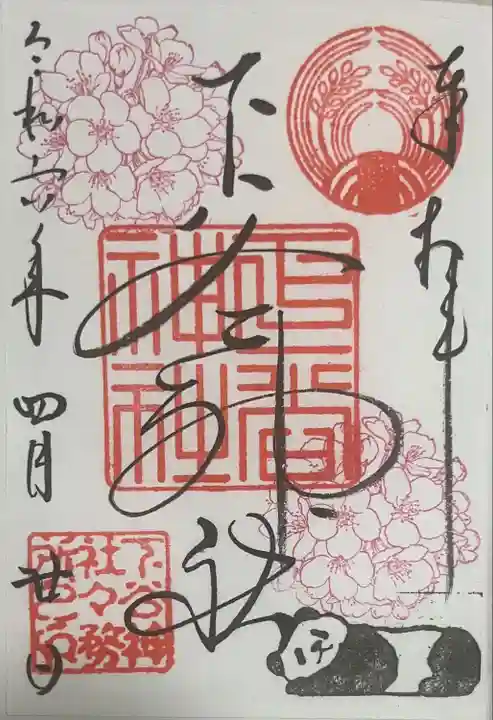 奉拝
下谷神社
下谷神社
令和六年四月廿日
下谷神
社々務
所之印